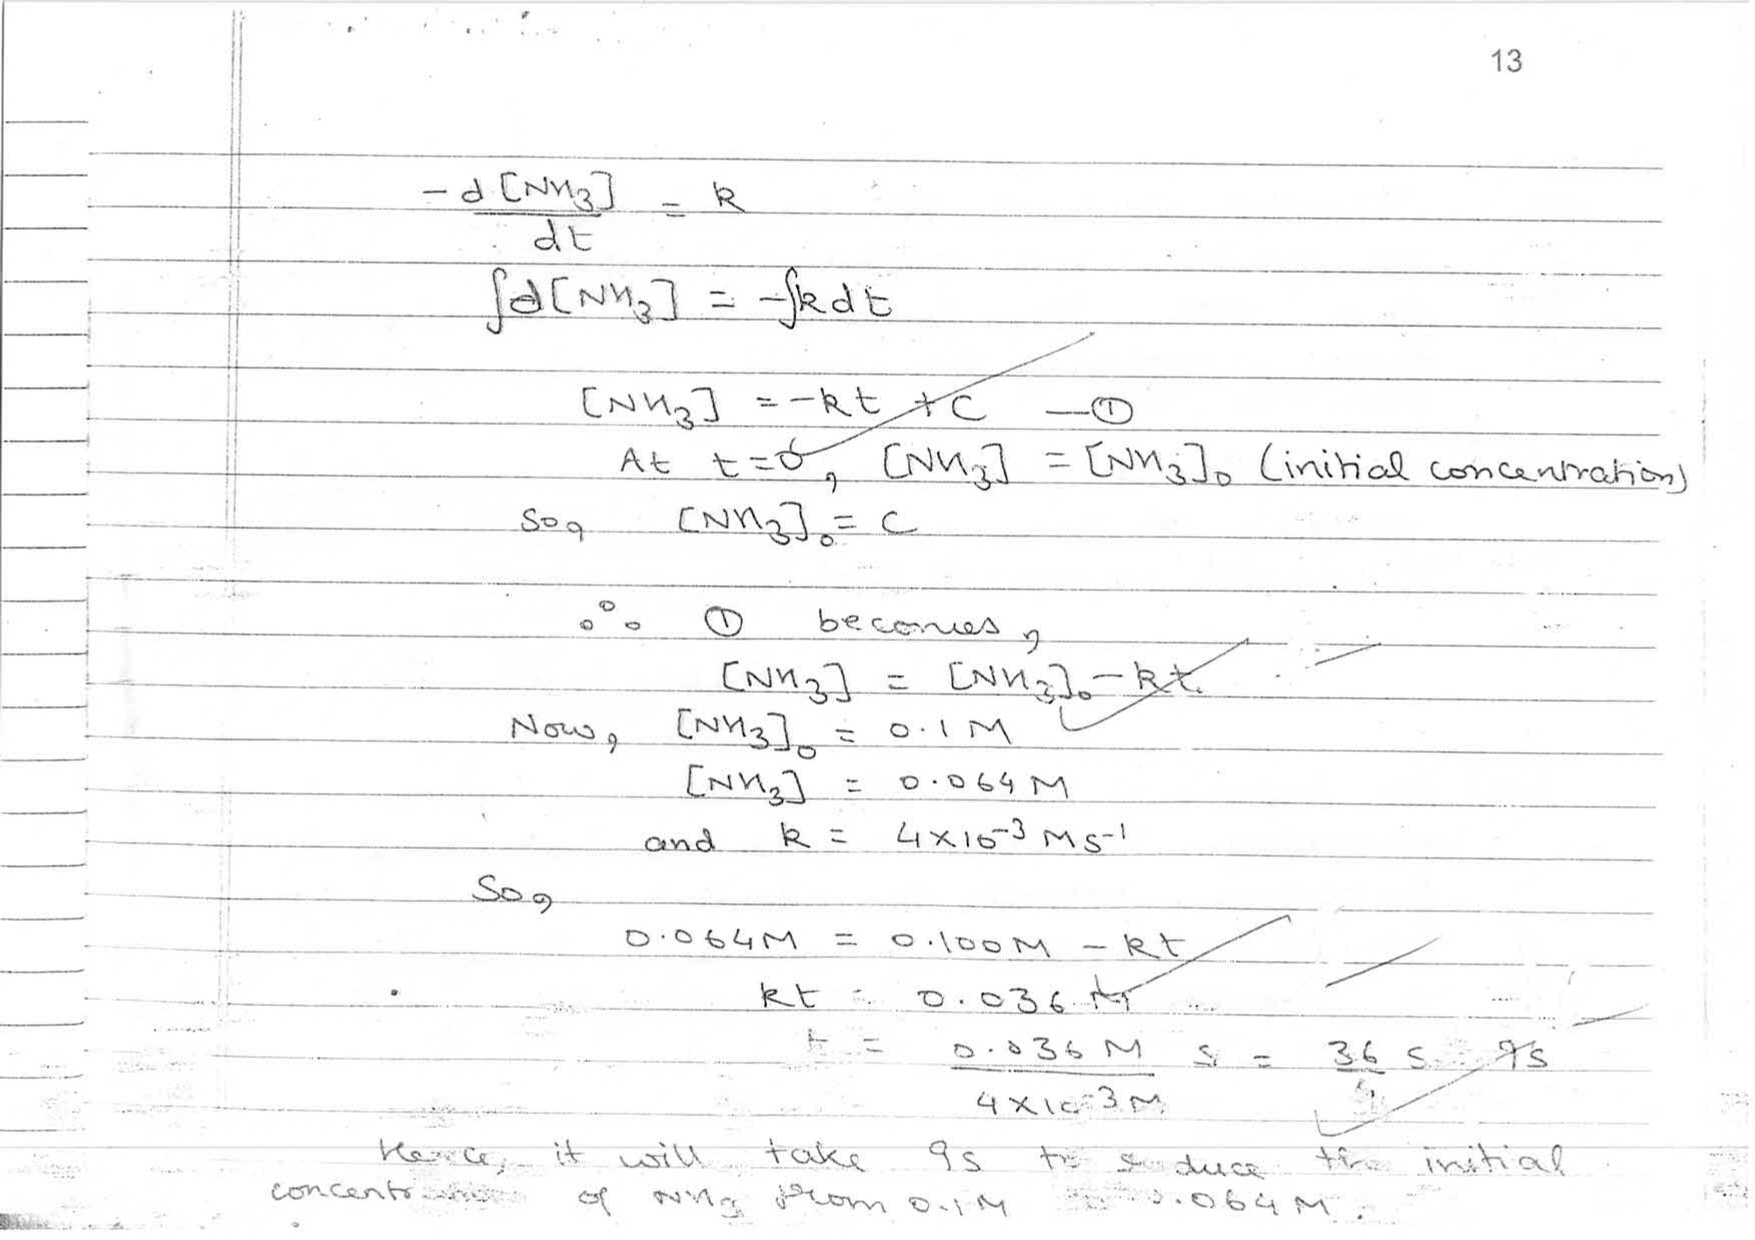 13
-d[NH3] = k
dt
∫d[NH3] = -∫kdt
[NH3] = -kt + C —①
At t=0, [NH3] = [NH3]₀ (initial concentration)
So, [NH3]₀ = C
∴ ① becomes,
[NH3] = [NH3]₀ - kt.
Now, [NH3]₀ = 0.1M
[NH3] = 0.064M
and k = 4×10⁻³ Ms⁻¹
So,
0.064M = 0.100M - kt
kt = 0.036 M
t = 0.036 M s = 36 s 9s
4×10⁻³ M 4
Hence, it will take 9s to reduce the initial
concentration of NH3 from 0.1M 0.064M.